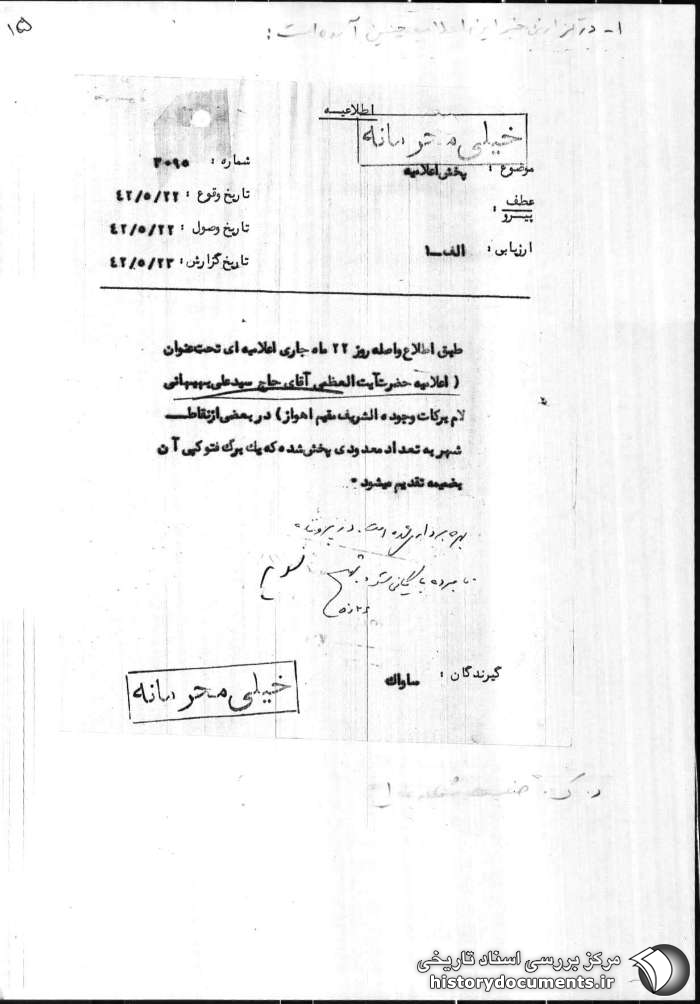 ۱۵
۱- در گزارش خبر این اعلامیه چنین آمده است:
اطلاعیـــه
خیلی محرمانه
موضوع : پخش اعلامیه
عطف
پیرو :
ارزیابی : الف-۱
شماره : ۳۰۹۵
تاریخ وقوع : ۴۲/۵/۲۲
تاریخ وصول : ۴۲/۵/۲۲
تاریخ گزارش : ۴۲/۵/۲۳
طبق اطلاع واصله روز ۲۲ ماه جاری اعلامیه ای تحت عنوان
( اعلامیه حضرت آیت العظمی آقای حاج سید علی بهبهانی
لام برکات وجوده الشریف مقیم اهواز) در بعضی از نقاط
شهر به تعداد معدودی پخش شده که یك برگ فتوکپی آن
بضمیمه تقدیم میشود .
بهره برداری شده است. در پرونده
نامبرده بایگانی شود.
گیرندگان : ساواك
خیلی محرمانه
مرکز بررسی اسناد تاریخی
historydocuments.ir